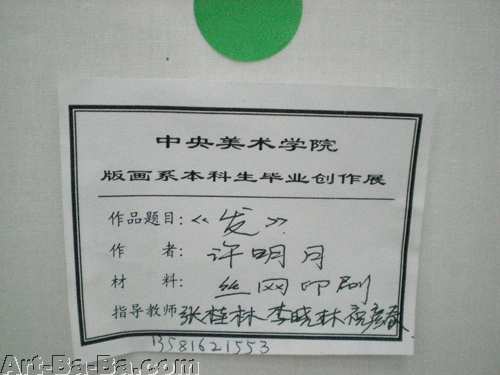 中央美术学院
版画系本科生毕业创作展
作品题目:《发》
作 者: 许明月
材 料: 丝网印刷
指导教师 张桂林 李晓林
13581621553
Art-Ba-Ba.com